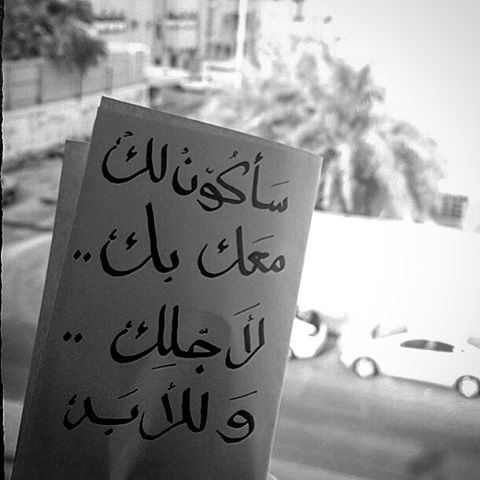 سَأكُوّنُ لكَ
معَك بك ..
لأَجّلِك ..
وَ للأبَد